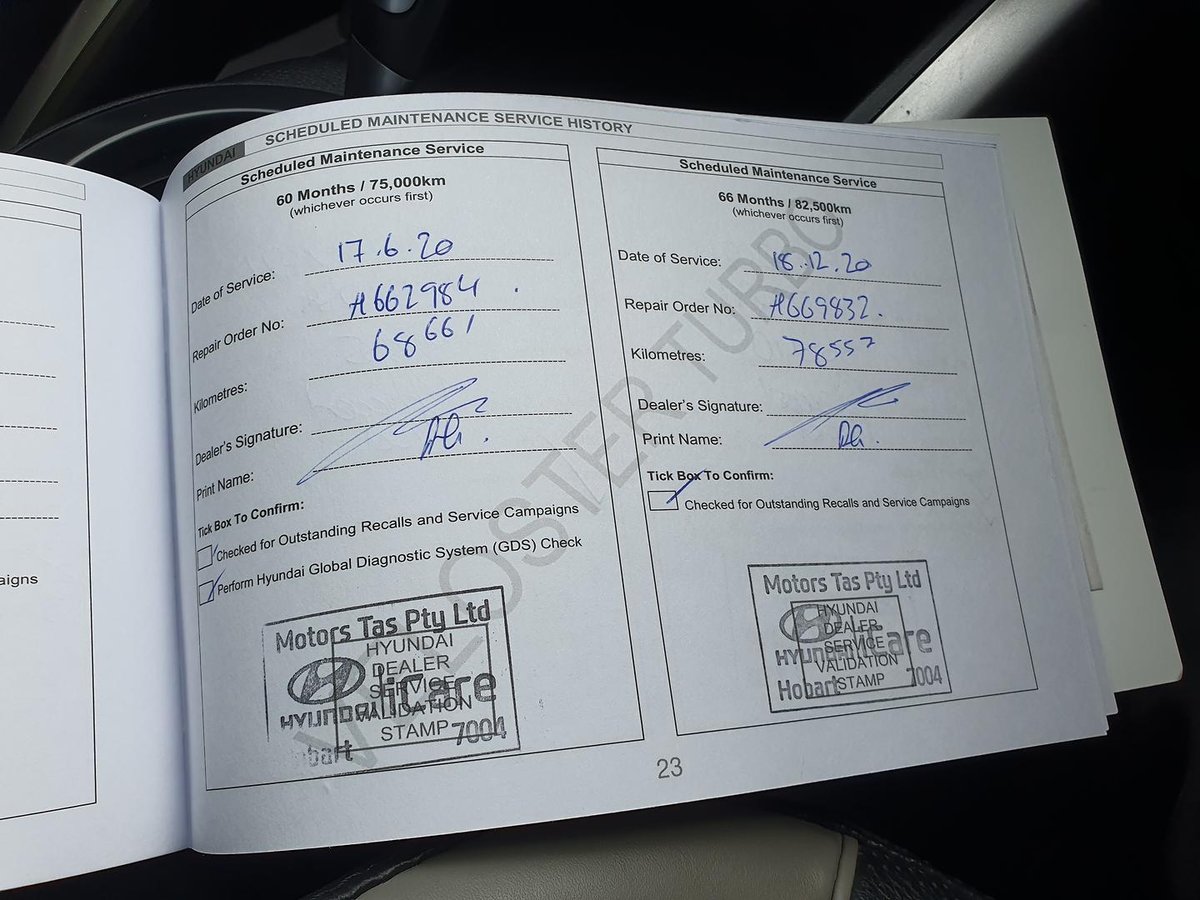 HYUNDAI
SCHEDULED MAINTENANCE SERVICE HISTORY
Scheduled Maintenance Service
60 Months / 75,000km
(whichever occurs first)
Date of Service: 17.6.20
Repair Order No: H662984
Kilometres: 68661
Dealer's Signature:
Print Name:
Tick Box To Confirm:
Checked for Outstanding Recalls and Service Campaigns
Perform Hyundai Global Diagnostic System (GDS) Check
Motors Tas Pty Ltd
HYUNDAI
DEALER
SERVICE
VALIDATION
STAMP
HYUNDAI iCare
bart 7004
Scheduled Maintenance Service
66 Months / 82,500km
(whichever occurs first)
Date of Service: 18.12.20
Repair Order No: H669832.
Kilometres: 78557
Dealer's Signature:
Print Name:
Tick Box To Confirm:
Checked for Outstanding Recalls and Service Campaigns
Motors Tas Pty Ltd
HYUNDAI
DEALER
SERVICE
VALIDATION
STAMP
HYUNDAI iCare
Hobart 7004
VELOSTER TURBO
23
aigns